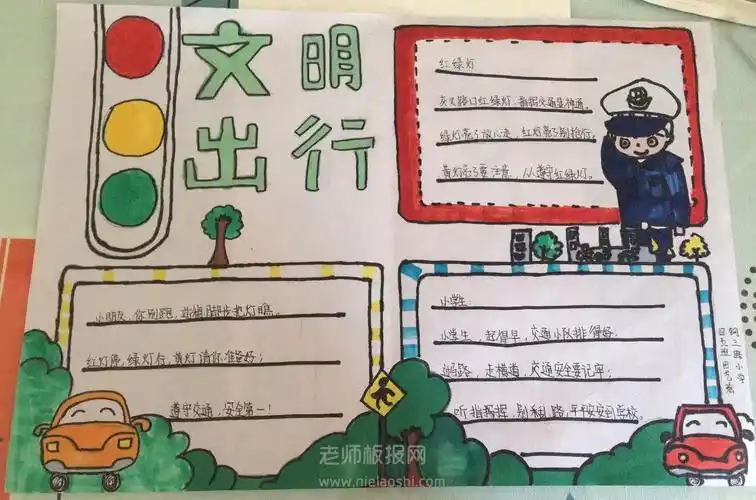 文明
出行
红绿灯
灭叉路口红绿灯，指挥交通显神通。
绿灯亮了放心走，红灯亮了别抢行。
黄灯亮了要注意，人人遵守红绿灯。
小朋友，你别跑，站稳脚步把灯瞧。
红灯停，绿灯行，黄灯请你准备好；
遵守交通，安全第一！
小学生
小学生，起得早，交通小队排得好。
过马路，走横道，交通安全要记牢；
听指挥，别乱跑，平平安安到学校。
老师板报网
www.nielaoshi.com